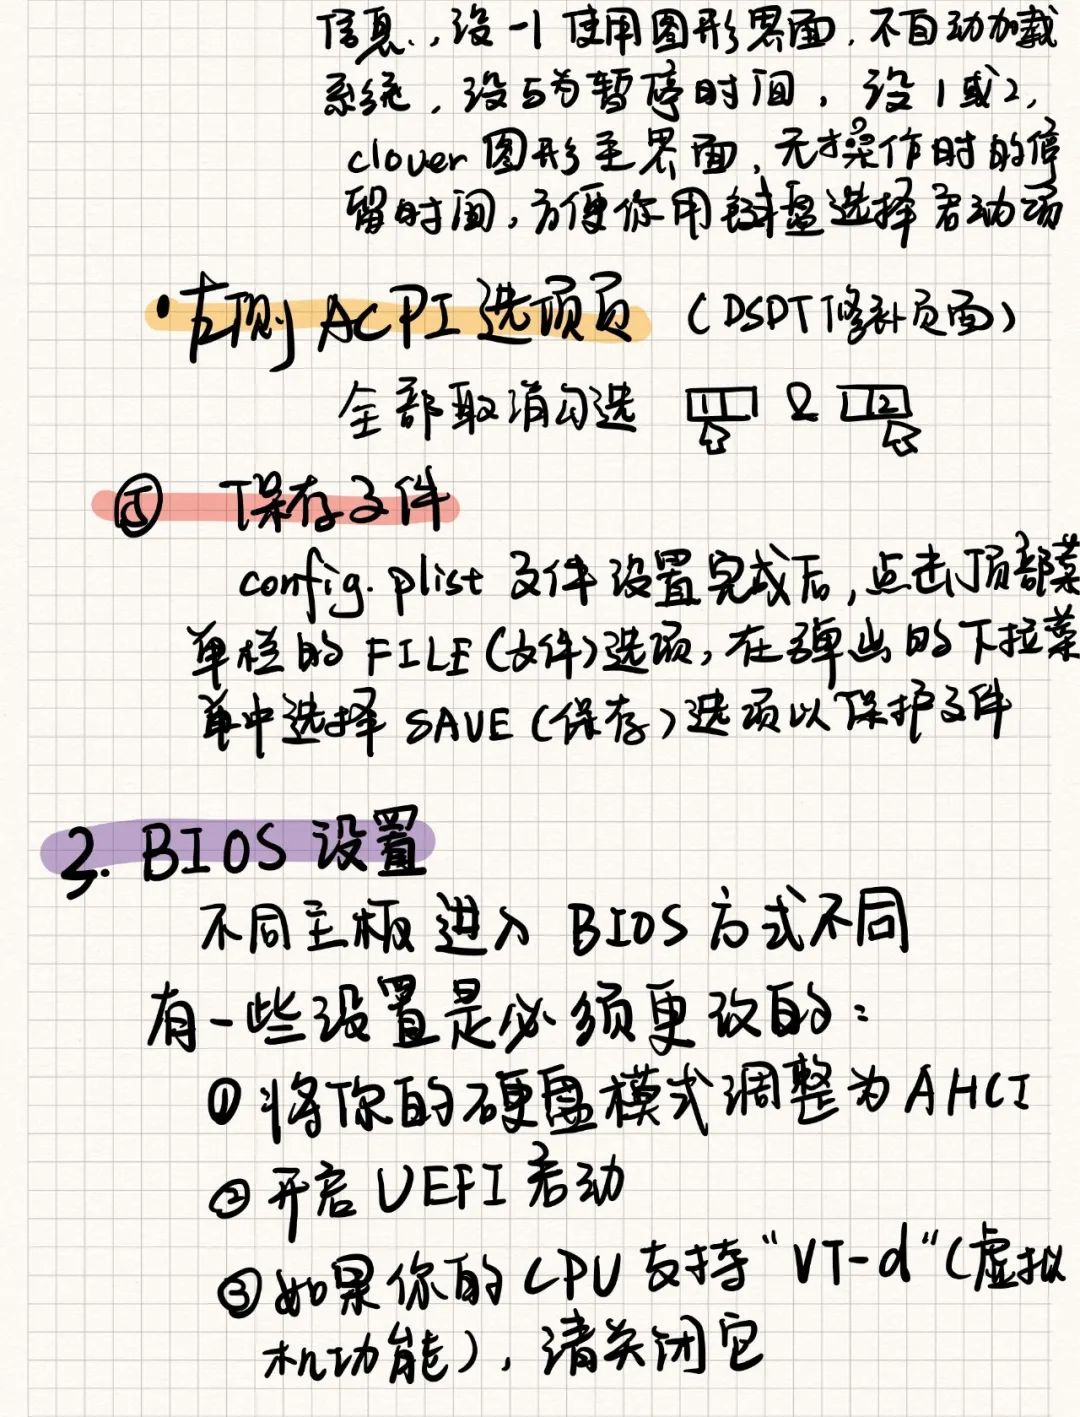 信息.,设-1使用图形界面,不自动加载
系统,设5为暂停时间,设1或2,
clover图形主界面,无操作时的停
留时间,方便你用键盘选择启动
·左侧ACPI选项页(DSDT修补页面)
全部取消勾选 1 & 2
⑤ 保存文件
config.plist文件设置完成后,点击顶部菜
单栏的FILE(文件)选项,在弹出的下拉菜
单中选择SAVE(保存)选项以保护文件
3. BIOS设置
不同主板进入BIOS方式不同
有一些设置是必须更改的:
①将你的硬盘模式调整为AHCI
②开启UEFI启动
③如果你的CPU支持“VT-d“(虚拟
机功能),请关闭它